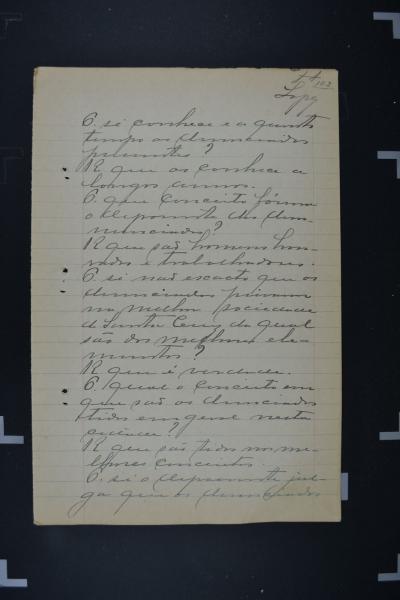 102
P. si conhece e a quanto
tempo os denunciados
presentes?
R. que os conhece a
longos annos.
P. que conceito fórma
o depoente dos denun-
nunciados?
R. que são homens hon-
rados e trabalhadores.
P. si não é exacto que os
denunciados privam
na melhor sociedade
de Santa Cruz da qual
são dos melhores ele-
mentos?
R. que é verdade.
P. qual o conceito em
que são os denunciados
tidos em geral nesta
cidade?
R. que são tidos nos me-
lhores conceitos.
P. si o depoente jul-
ga que os denunciados